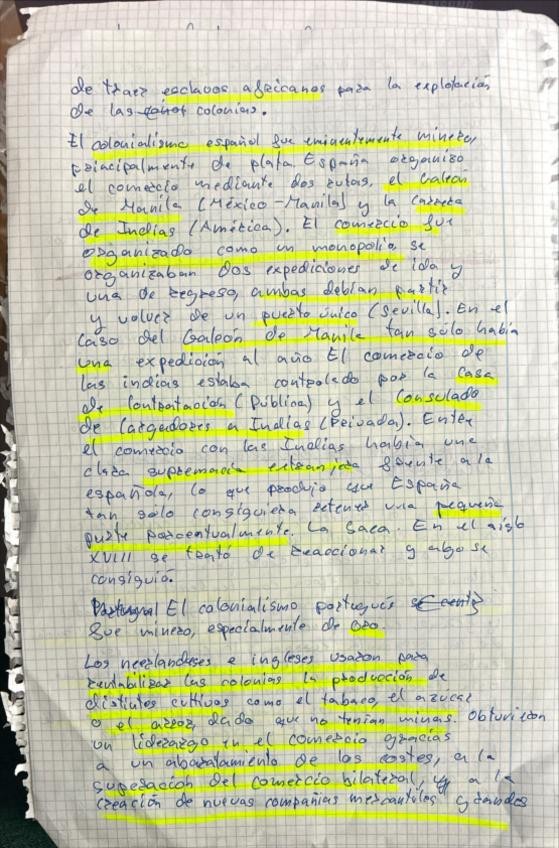 de traer esclavos africanos para la explotación
de las colonias.
El colonialismo español fue eminentemente minero,
principalmente de plata. España organizó
el comercio mediante dos rutas, el Galeón
de Manila (México-Manila) y la Carrera
de Indias (América). El comercio fue
organizado como un monopolio, se
organizaban dos expediciones de ida y
una de regreso, ambas debían partir
y volver de un puerto único (Sevilla). En el
caso del Galeón de Manila tan sólo había
una expedición al año El comercio de
las indias estaba controlado por la Casa
de Contratación (Pública) y el Consulado
de Cargadores a Indias (Privada). Entre
el comercio con las Indias había una
clara supremacía extranjera frente a la
española, lo que produjo que España
tan sólo consiguiera retener una pequeña
parte porcentualmente. La Saca. En el siglo
XVIII se trató de reaccionar y algo se
consiguió.
El colonialismo portugués
fue minero, especialmente de oro.
Los neerlandeses e ingleses usaron para
rentabilizar las colonias la producción de
distintos cultivos como el tabaco, el azucar
o el arroz, dado que no tenían minas. Obtuvieron
un liderazgo en el comercio gracias
a un abaratamiento de los costes, a la
superación del comercio bilateral, y a la
creación de nuevas compañías mercantiles grandes